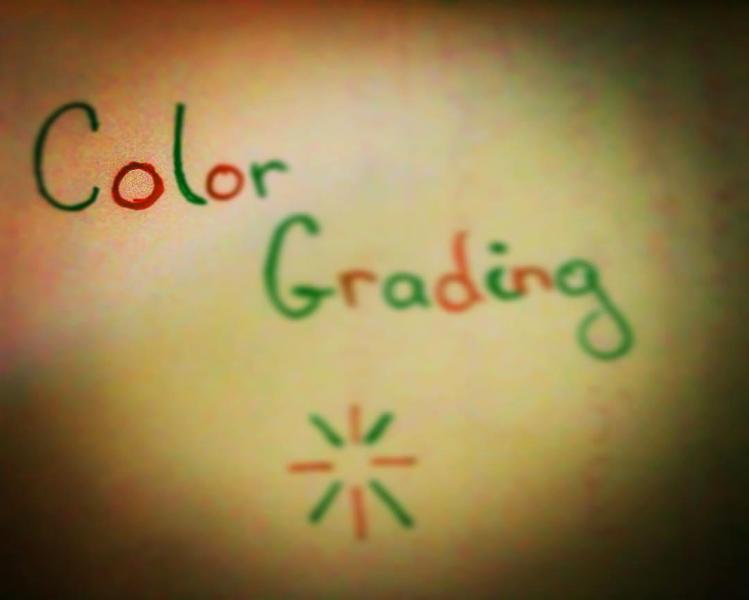 Color
Grading